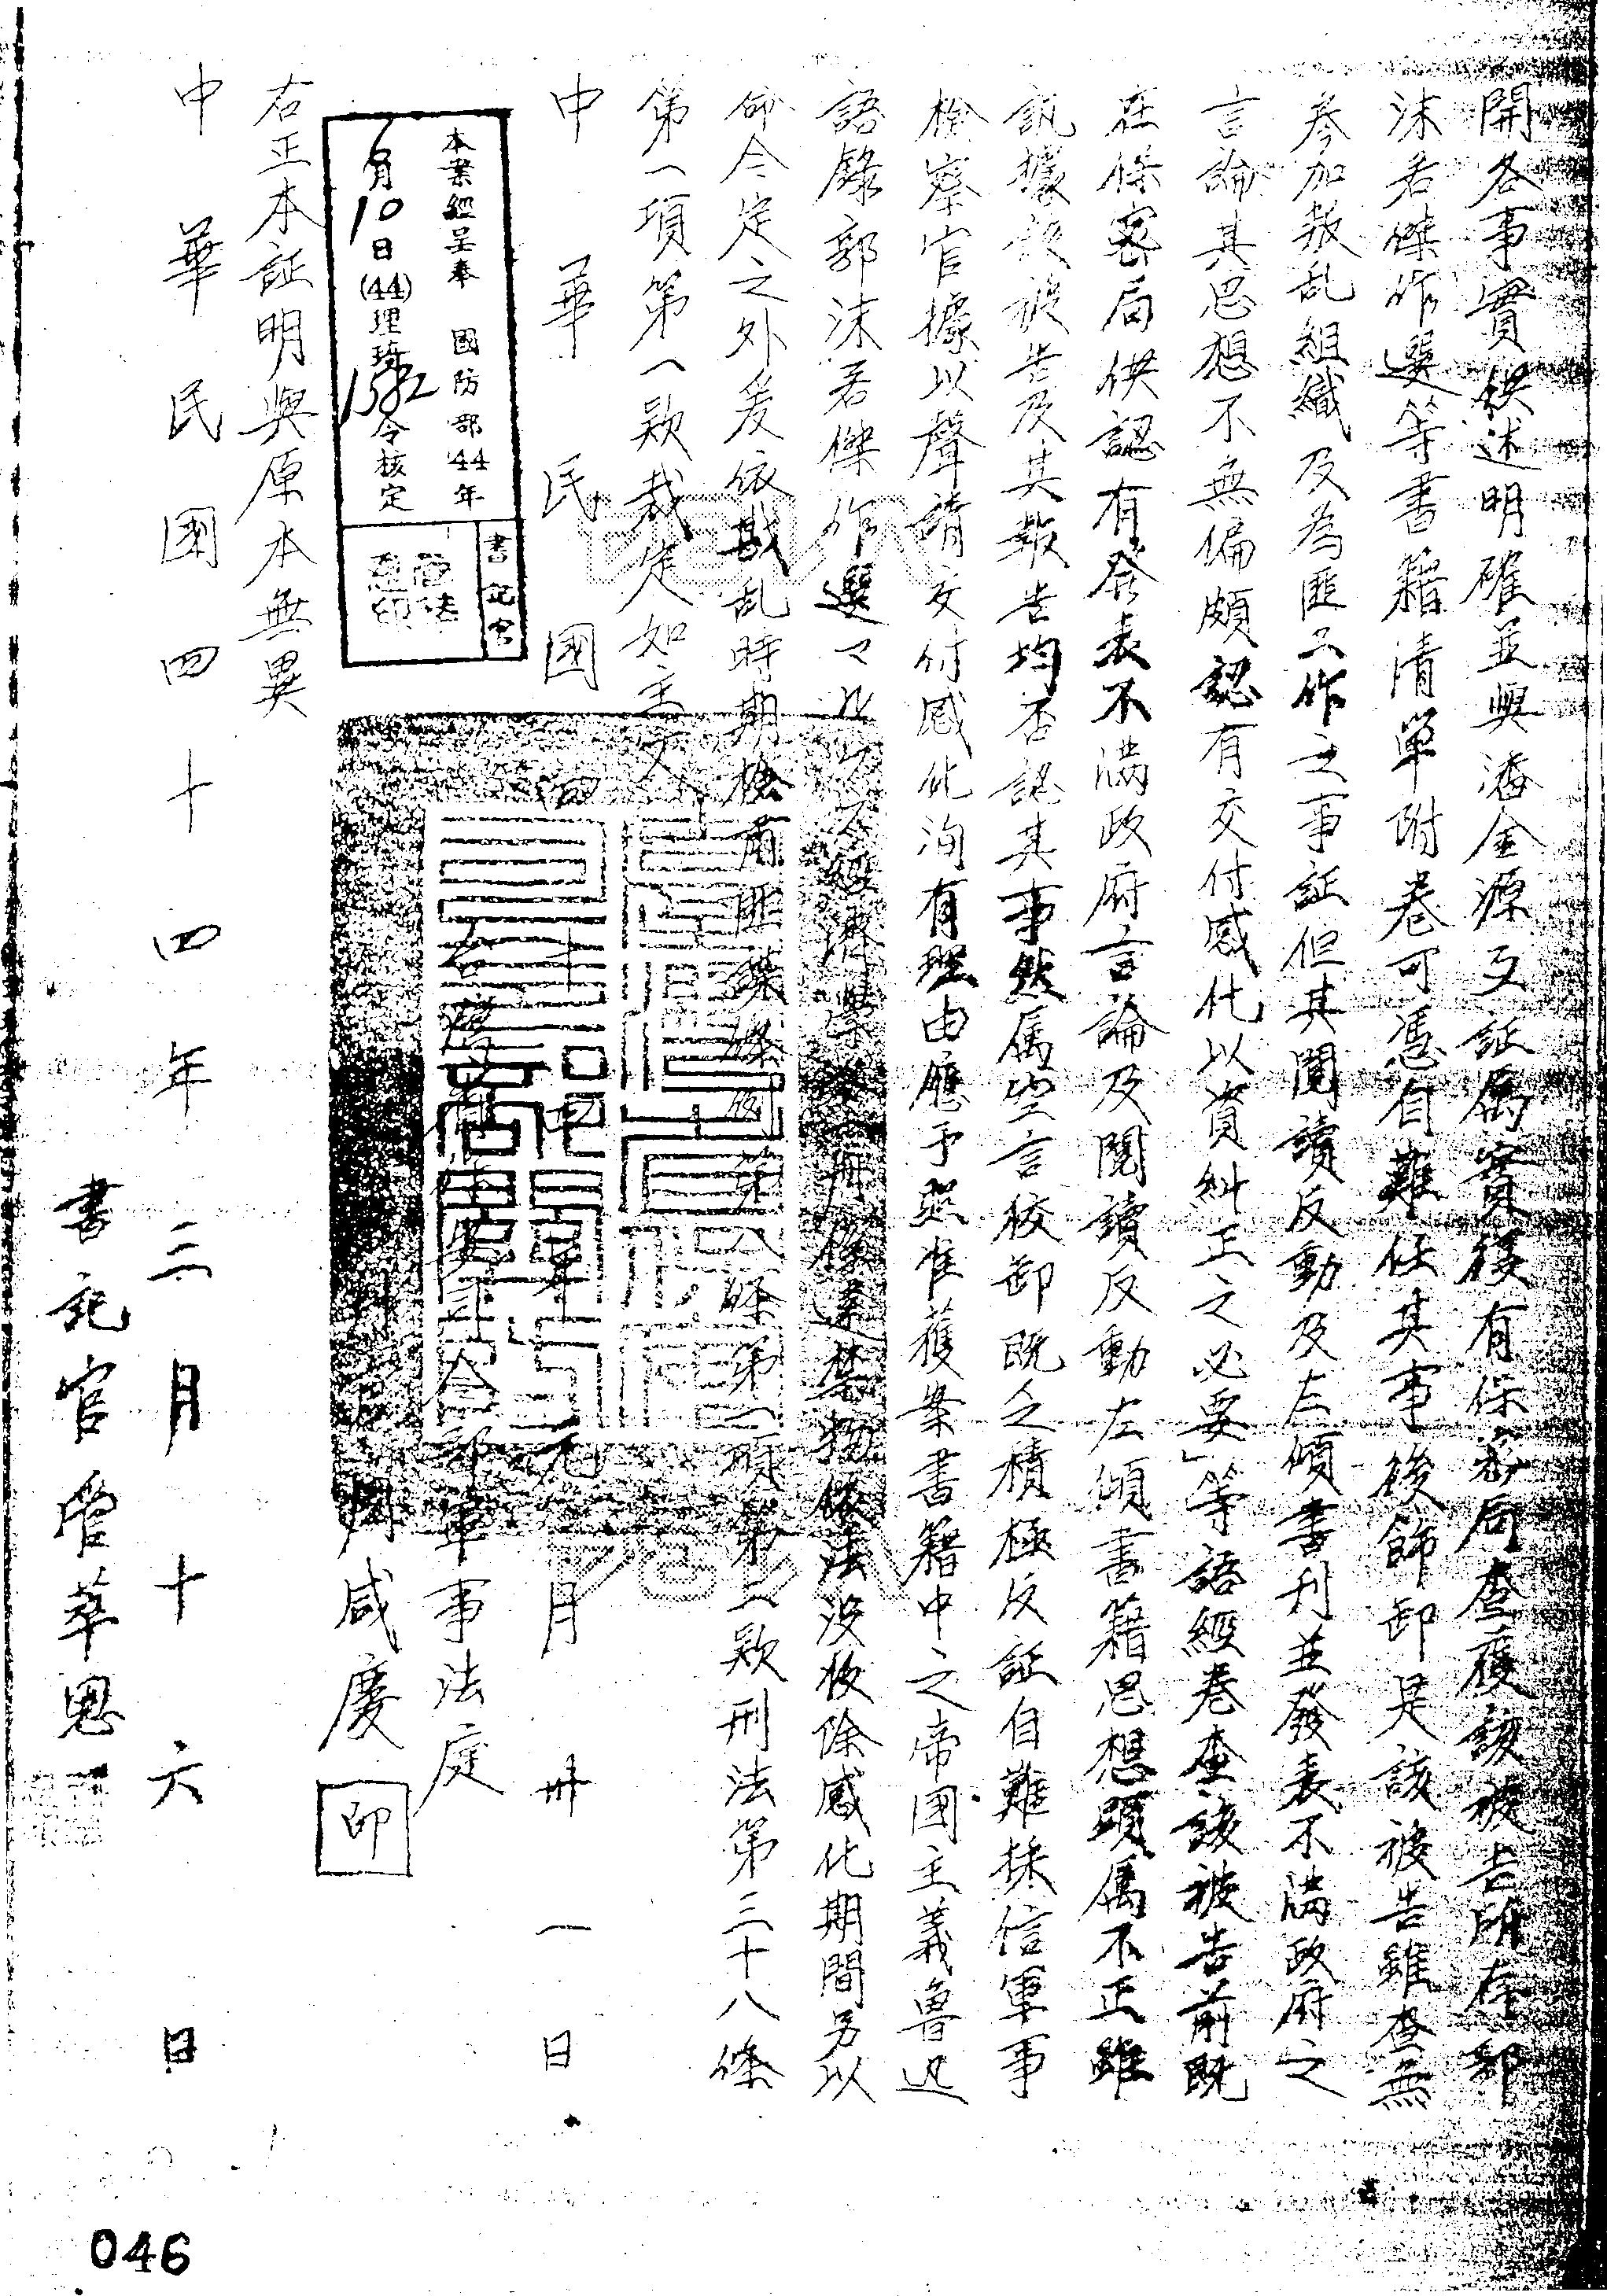 開各事實供述明確並與潘金源互証属實復有保密局查獲該被告所存郭
沫若傑作選等書籍清單附卷可憑自難任其事後飾卸是該被告雖查無
參加叛乱組織及為匪工作之事証但其閱讀反動及左傾書刊並發表不滿政府之
言論其思想不無偏頗認有交付感化以資糾正之必要」等語經卷查該被告前既
在保密局供認有發表不滿政府言論及閱讀反動左傾書籍思想頭属不正雖
訊據該被告及其報告均否認其事然属空言狡卸既乏積極反証自難採信軍事
檢察官據以聲請交付感化洵有理由應予照准獲案書籍中之帝國主義魯迅
語錄郭沫若傑作選
經濟學
係違禁物依法沒收除感化期間另以
命令定之外爰依戡乱時期檢肅匪諜條例第八條第一項第二款刑法第三十八條
第一項第一款裁定如主文
中華民國四十四年元月卅一日
台灣省保安司令部軍事法庭
周咸慶 印
本案經呈奉 國防部44年
月10日(44)理琦1582令核定
書記官
右正本証明與原本無異
中華民國四十四年三月十六日
書記官
046